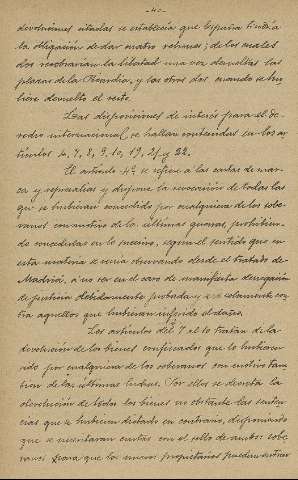 -40-
devoluciones citadas se establecía que España tendría
la obligación de dar cuatro rehenes; de los cuales
dos recobrarían la libertad una vez devueltas las
plazas de la Picardía, y los otros dos cuando se hu-
biese devuelto el resto.
Las disposiciones de interés para el De-
recho internacional, se hallan contenidas en los ar-
tículos 4, 7, 8, 9, 10, 19, 21 y 22.
El artículo 4º se refiere a las cartas de mar-
ca y represalias y dispone la revocación de todas las
que se hubieran concedido por cualquiera de los sobe-
ranos con motivo de las últimas guerras, prohibien-
do concederlas en lo sucesivo, según el sentido que en
esta materia se venía observando desde el tratado de
Madrid, a no ser en el caso de manifiesta denegación
de justicia debidamente probada, y solamente con-
tra aquellos que hubieran inferido el daño.
Los artículos del 7 al 10 tratan de la
devolución de los bienes confiscados que lo hubieran
sido por cualquiera de los soberanos con motivo tam-
bien de las últimas luchas. Por ellos se decretó la
devolución de todos los bienes no obstante las senten-
cias que se hubieran dictado en contrario, disponiendo
que se cartas con el sello de ambos sobe-
ranos para que los nuevos propietarios pudieran entrar